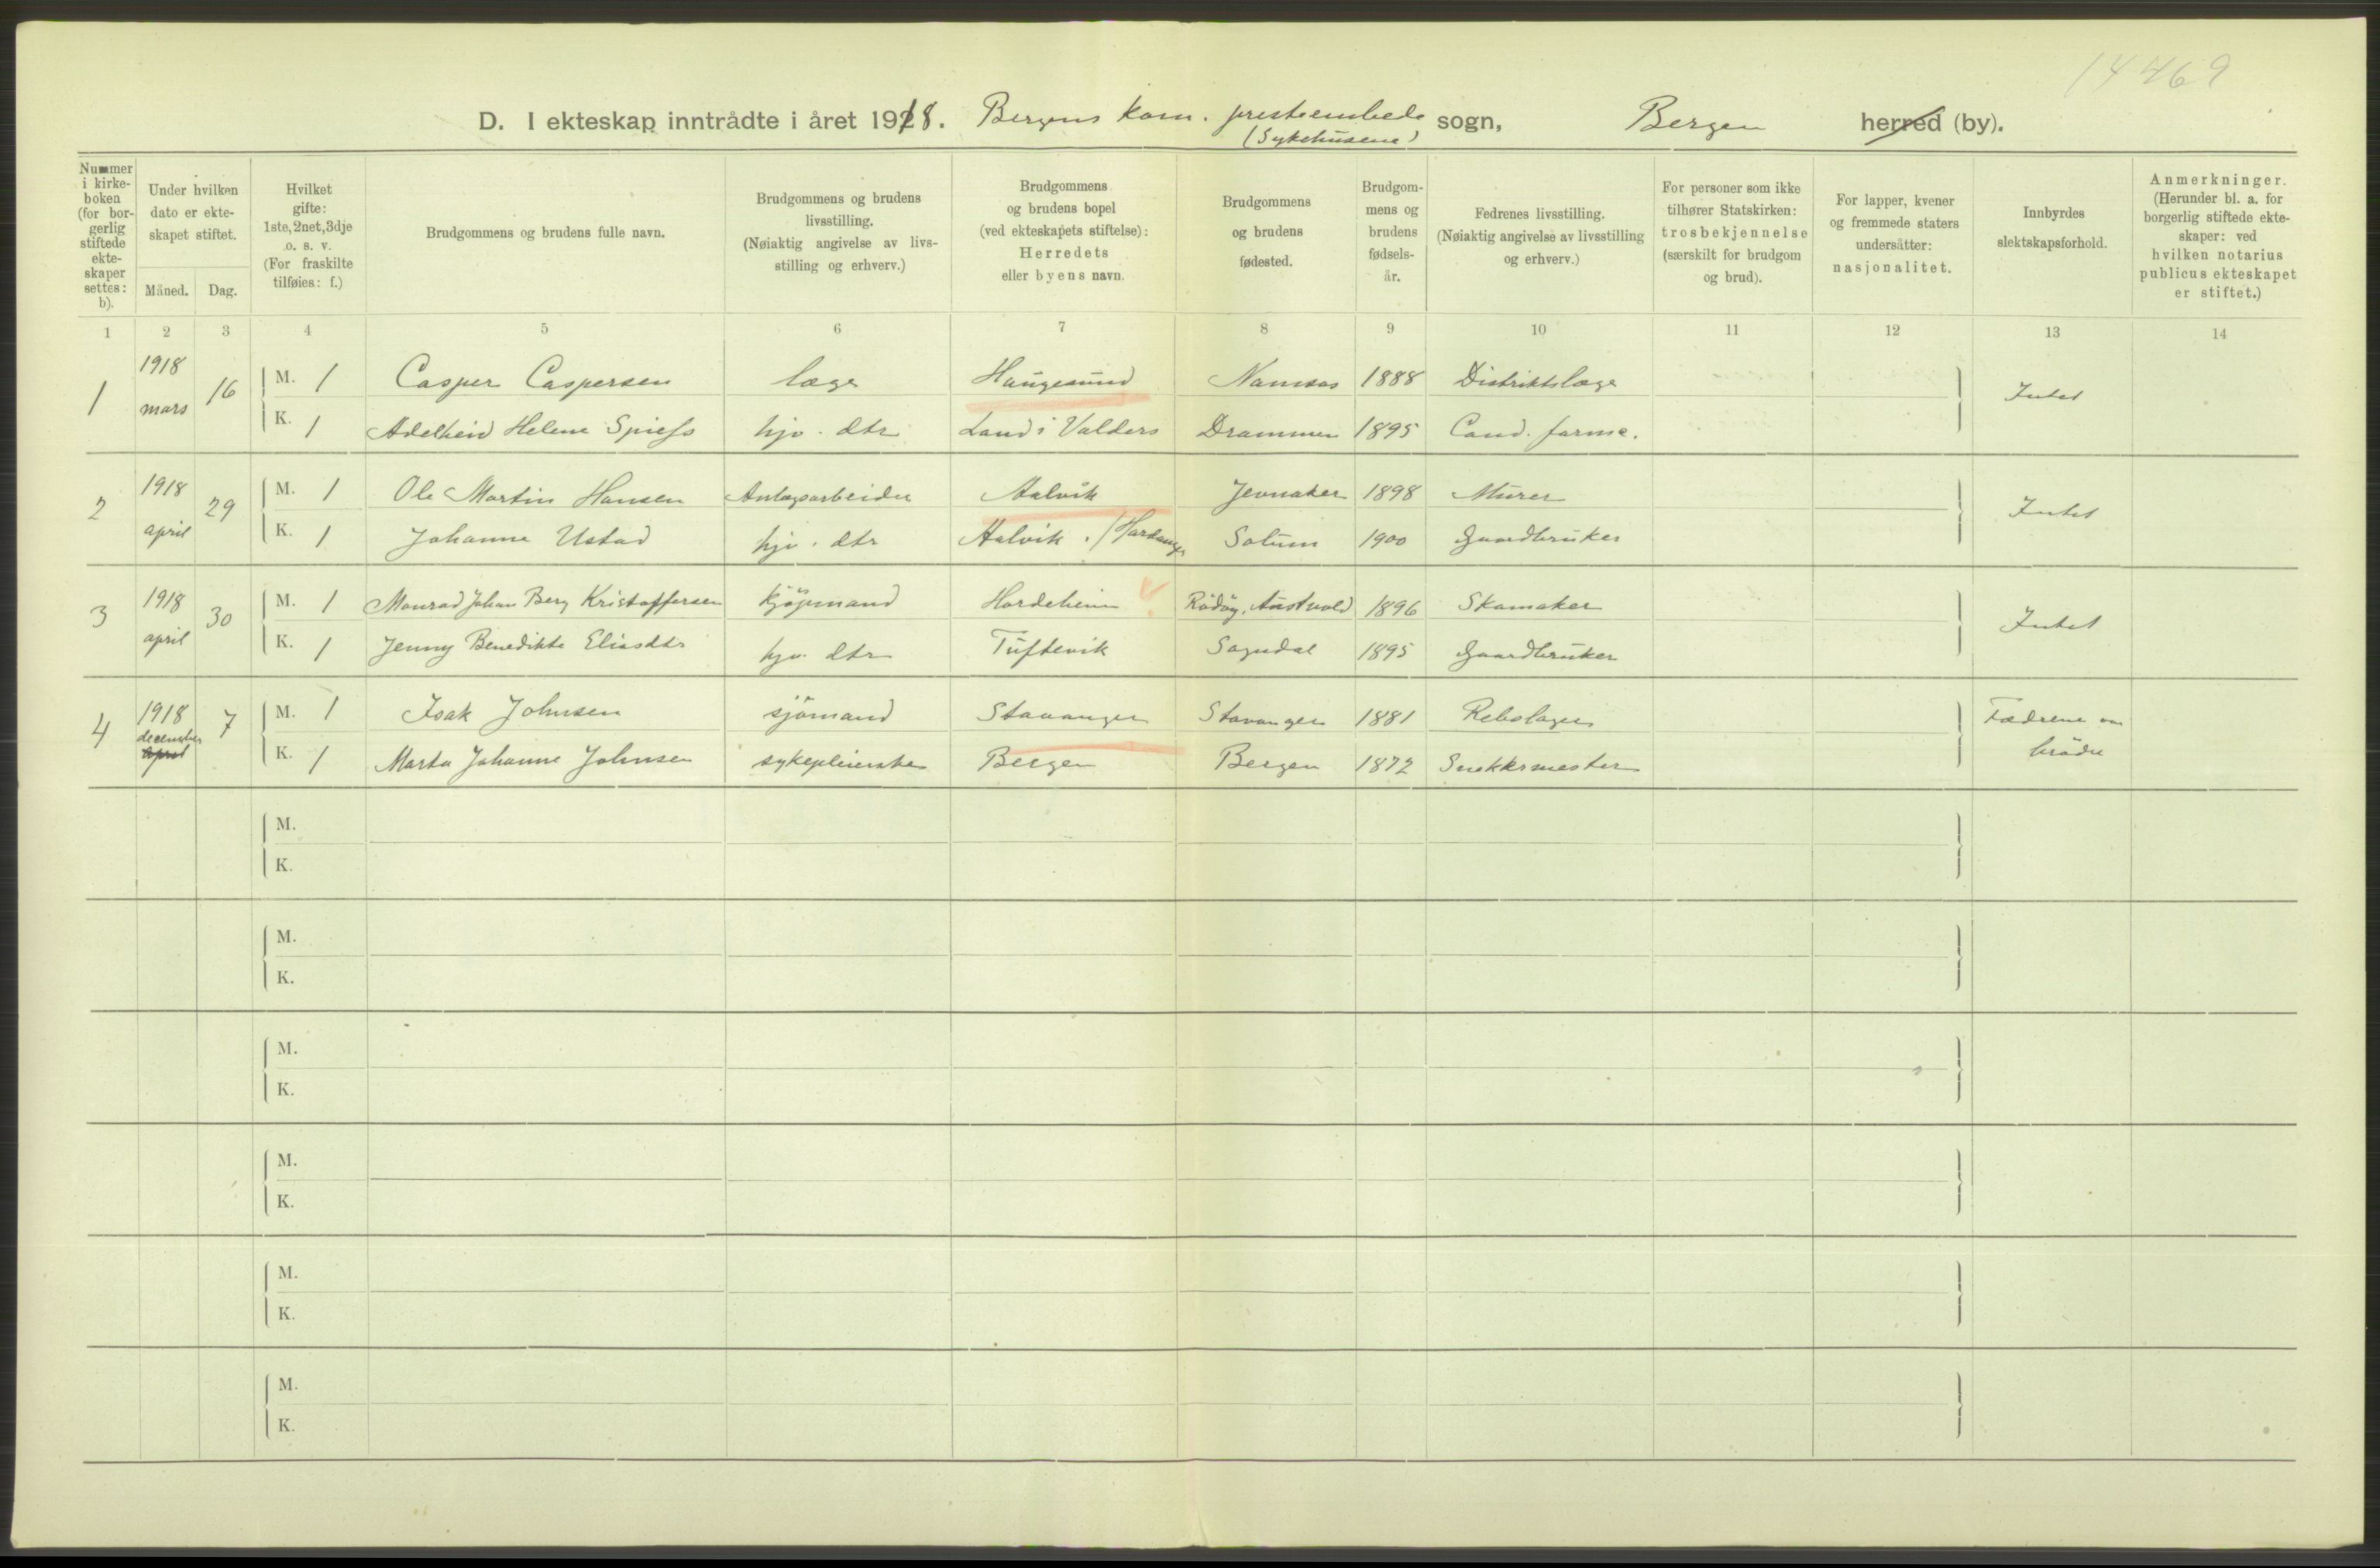 14469
D. I ekteskap inntrådte i året 1918. Bergens kom. presteembede sogn, Bergen herred (by).
(Sykehusene)
Nummer i kirke-boken (for bor-gerlig stiftede ekte-skaper settes: b).
Under hvilken dato er ekte-skapet stiftet.
Måned. Dag.
Hvilket gifte: 1ste, 2net, 3dje o. s. v. (For fraskilte tilføies: f.)
Brudgommens og brudens fulle navn.
Brudgommens og brudens livsstilling. (Nøiaktig angivelse av livs-stilling og erhverv.)
Brudgommens og brudens bopel (ved ekteskapets stiftelse): Herredets eller byens navn.
Brudgommens og brudens fødested.
Brudgom-mens og brudens fødsels-år.
Fedrenes livsstilling. (Nøiaktig angivelse av livsstilling og erhverv.)
For personer som ikke tilhører Statskirken: trosbekjennelse (særskilt for brudgom og brud).
For lapper, kvener og fremmede staters undersåtter: nasjonalitet.
Innbyrdes slektskapsforhold.
Anmerkninger. (Herunder bl. a. for borgerlig stiftede ekte-skaper: ved hvilken notarius publicus ekteskapet er stiftet.)
1 2 3 4 5 6 7 8 9 10 11 12 13 14
1 1918 mars 16 M. 1 Casper Caspersen læge Haugesund Namsos 1888 Distriktslæge Intet
K. 1 Adelheid Helene Spiess hjv. dtr Land i Valders Drammen 1895 Cand. farma.
2 1918 april 29 M. 1 Ole Martin Hansen Anlægsarbeider Aalvik Jevnaker 1898 Murer Intet
K. 1 Johanne Ustad hjv. dtr Aalvik i Hardanger Solum 1900 Gaardbruker
3 1918 april 30 M. 1 Monrad Johan Berg Kristoffersen kjøpmand Hordeheim Rödöy, 1896 Skomaker Intet
K. 1 Jenny Benedikte Eliasdtr hjv. dtr Tuftevik Sogndal 1895 Gaardbruker
4 1918 december april 7 M. 1 Isak Johnsen sjömand Stavanger Stavanger 1881 Rebslager Fædrene var brödre
K. 1 Marta Johanne Johnsen sykepleierske Bergen Bergen 1872 Snekkermester
M.
K.
M.
K.
M.
K.
M.
K.
M.
K.
M.
K.